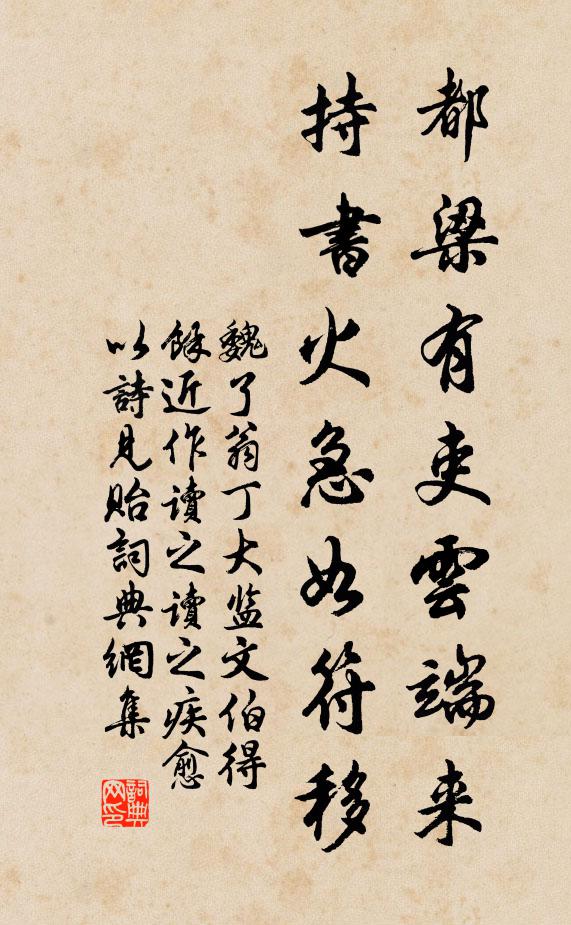 都梁有吏雲端来
持書火急如符移
魏了翁丁大监文伯得
餘近作读之读之疾愈
以詩見貽詞典網集
詞典網印